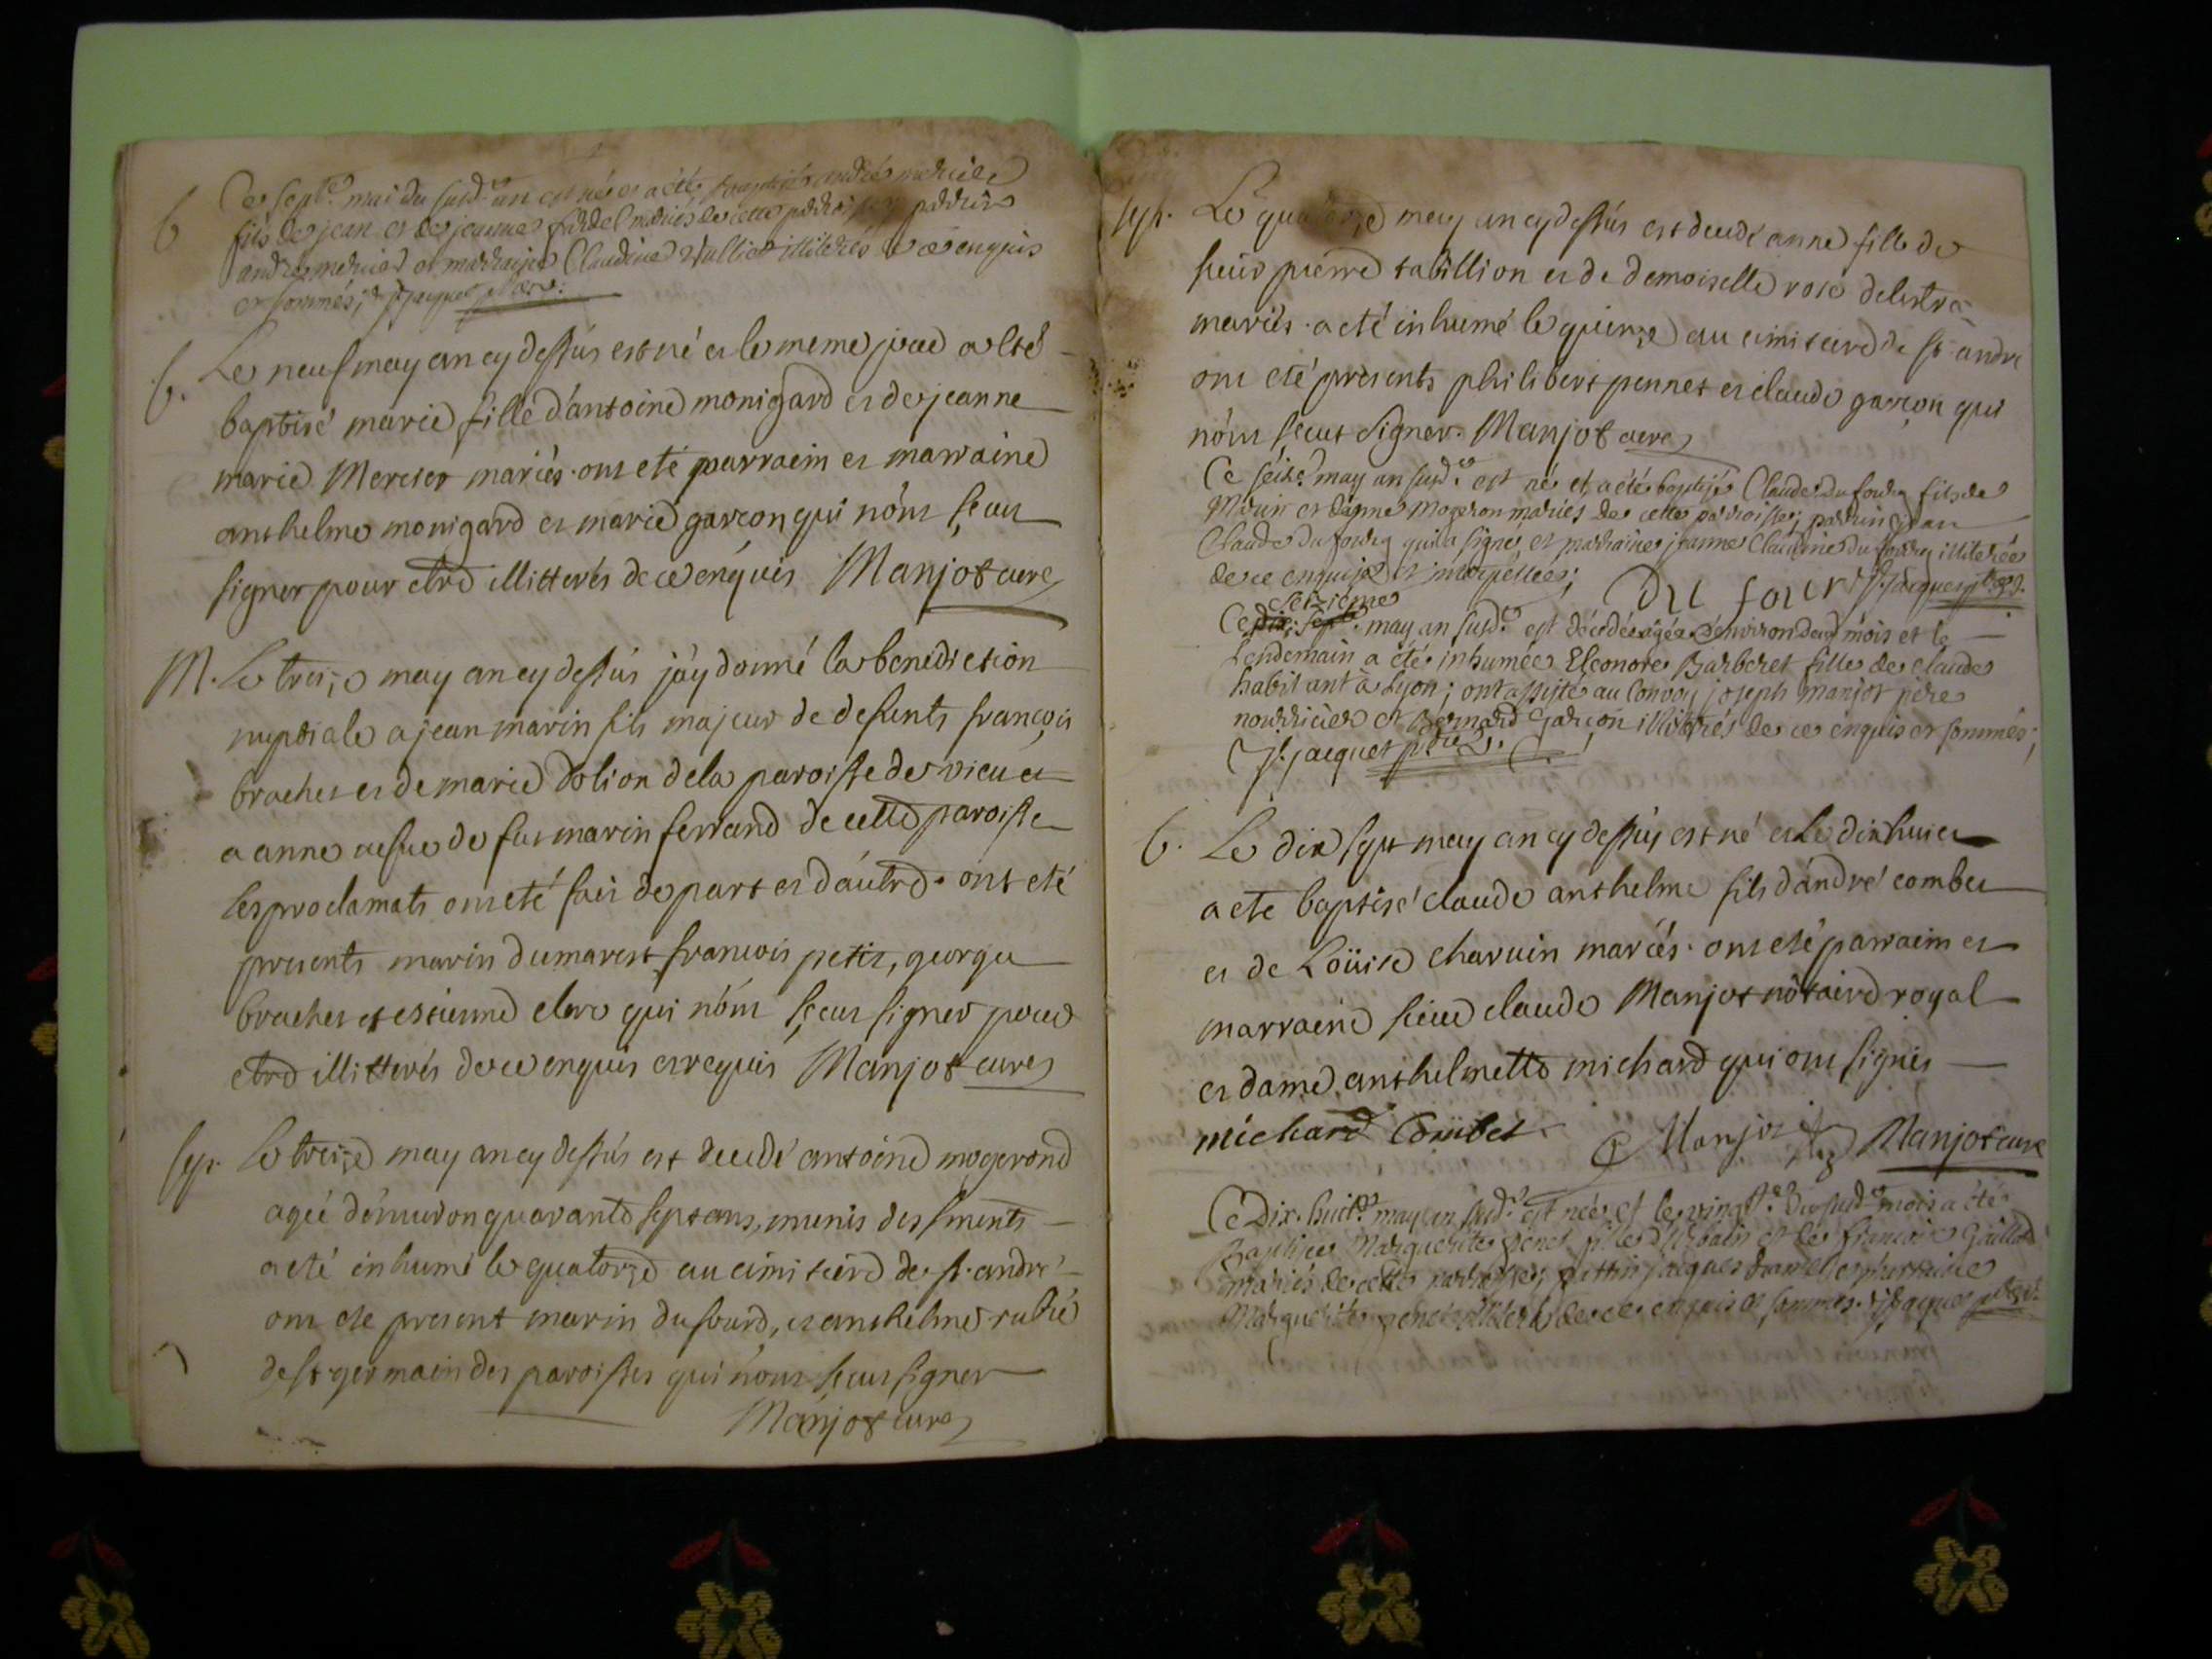 b Ce sept.e mai du susd.t an est né et a été baptisé andré mercier
fils de jean et de jeanne fardel mariés de cette parroisse; parrin
andré mercier et marraine Claudine illiterés de ce enquis
et sommés; jacquet
b. Le neuf may an cy dessus est né et le meme jour a eté
baptisé marie fille d'antoine monigard et de jeanne
marie Mercier mariés. ont eté parrain et marraine
anthelme monigard et marie garçon qui n'ont sçeut
signer pour etre illitterés de ce enquis Manjot curé
M. Le treize may an cy dessus j'ay donné la benediction
nuptiale a jean marin fils majeur de defunts françois
brachet et de marie dolion de la paroisse de vieu et
a anne vefue de fut marin ferrand de cette paroisse
les proclamats ont eté fait de part et d'autre. ont eté
presents marin dumarest françois petit, george
brachet et estienne clerc qui n'ont sçeut signer pour
etre illitterés de ce enquis et requis Manjot curé
sep. Le treize may an cy dessus est decedé antoine mogerond
agée d'enuiron quarante sept ans, munis des sments
a eté inhumé le quatorze au cimitiere de st. andré
ont ete present marin dufourd, et anthelme rubié
de st germain des paroisses qui n'ont sçeut signer
Manjot curé
sep. Le quatorze may an cy dessus est decedé anne fille de
sieur pierre tabillion et de demoiselle rose delestra
mariés. a eté inhumé le quinze au cimitiere de st. andre
ont eté presents philibert pennet et claude garçon qui
n'ont sçeut signer. Manjot curé
Ce séize may an susd.t est né et a été baptisé Claude du fourg fils de
Marin et d'anne Mogeron mariés de cette parroisse; parrin jean
Claude du fourg qui a signé et marraine jeanne Claudine du fourg illiterée
de ce enquise et interpellée; Du four jacquet
seizieme
Ce dix sept may an susd.t est décédée agée d'environ deux mois et le
Lendemain a été inhumée Eleonore Barberet fille de claude
habitant à Lyon; ont assisté au Convoy joseph manjot père
nourricier et Bernard Garçon illiterés de ce enquis et sommés;
jacquet
b. Le dix sept may an cy dessus est né et le dix huict
a ete baptisé claude anthelme fils d'andré combet
et de Loüise charuin mariés. ont eté parrain et
marraine sieur claude Manjot notaire royal
et dame anthelmette michard qui ont signés
michard Combet Manjot Manjot curé
Ce Dix. huit.e may an susd.t est née et le vingt.e du susd.t mois a été
Baptisée Marguerite penet fille d'Urbain et de françoise Gaillard
mariés de cette parroisse; parrin jacques et marraine
Marguerite penet illiterés de ce enquis et sommés. jacquet